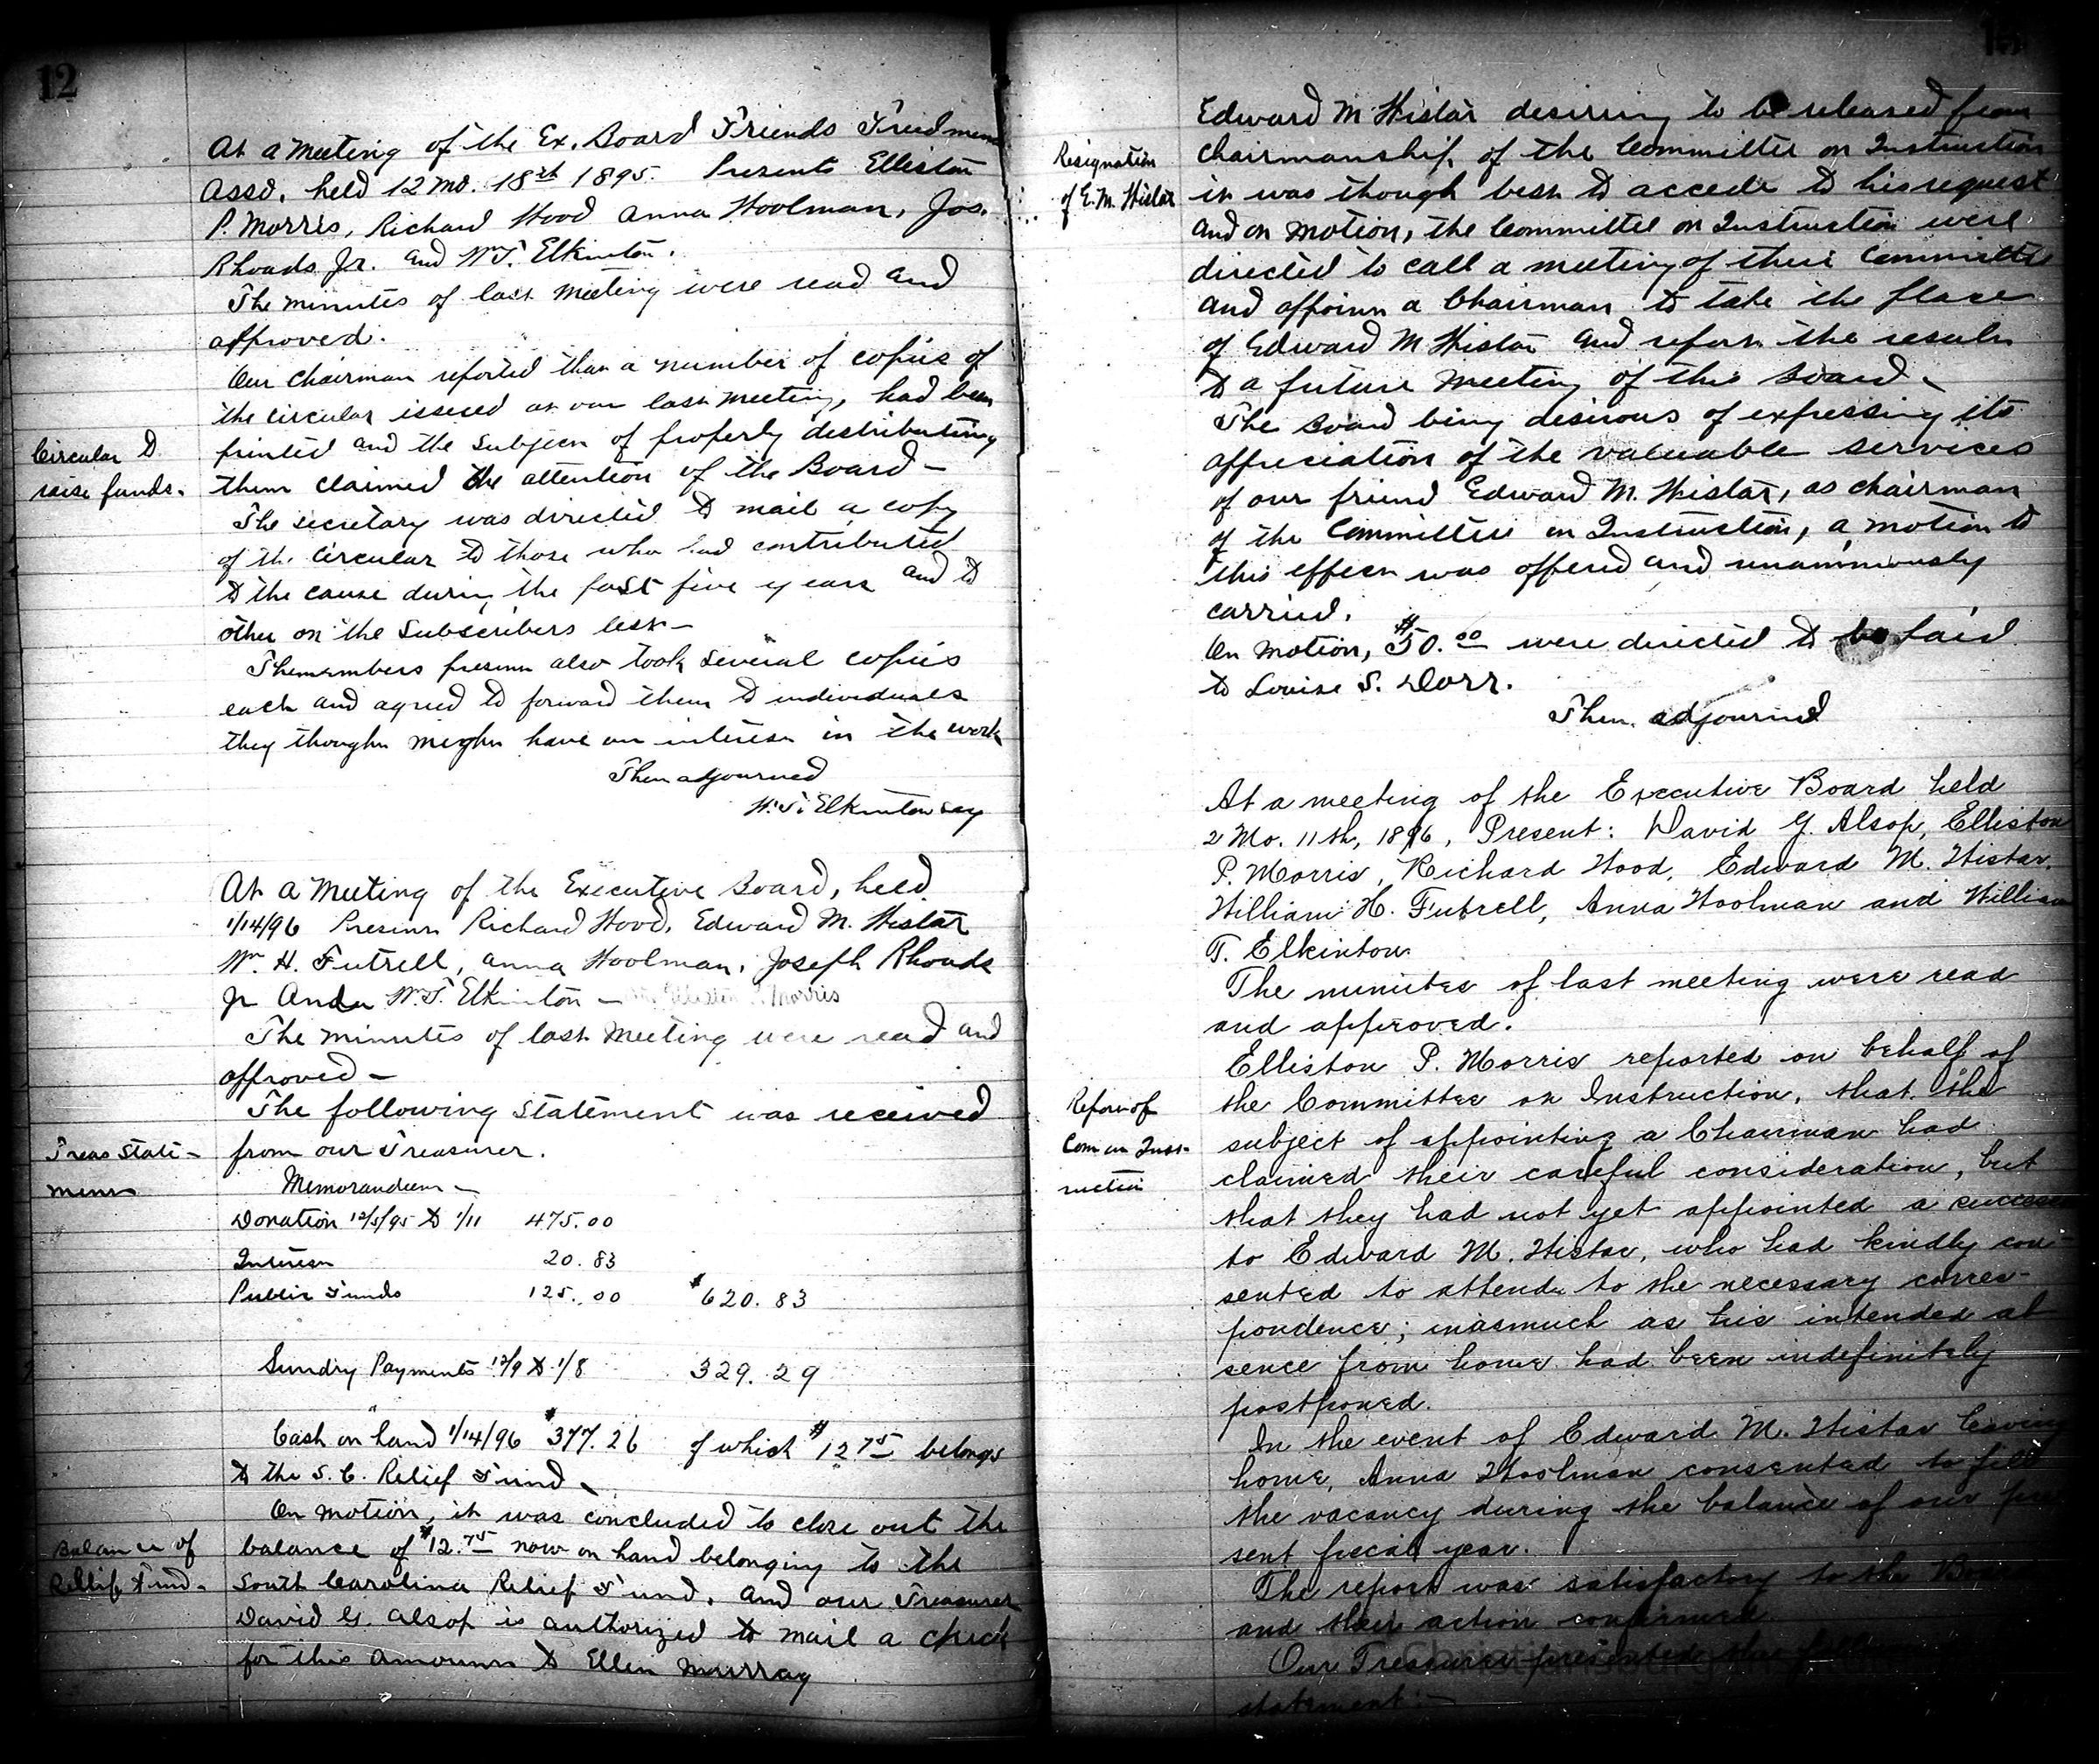 12
At a Meeting of the Ex. Board Friends Freedmens
Asso. held 12 mo. 18th 1895. Presents Elliston
P. Morris, Richard Wood Anna Woolman, Jos.
Rhoads Jr. and Wm T. Elkinton.
The minutes of last meeting were read and
approved.
Our Chairman reported that a number of copies of
the circular issued at our last meeting, had been
Circular to
raise funds.
printed and the subject of properly distributing
them claimed the attention of the Board —
The secretary was directed to mail a copy
of the circular to those who had contributed
to the cause during the past five years and to
other on the Subscribers list —
The members present also took several copies
each and agreed to forward them to individuals
they thought might have an interest in the work
Then adjourned
W. T. Elkinton secy
At a Meeting of the Executive Board, held
1/14/96 Present Richard Wood, Edward M. Wistar
Wm H. Futrell, Anna Woolman, Joseph Rhoads
Jr and Wm T. Elkinton — Elliston P. Morris
The minutes of last meeting were read and
approved —
The following statement was received
Treas State-
ment
from our Treasurer.
Memorandum —
Donation 12/5/95 to 1/11 475.00
Interest 20.83
Public Funds 125.00 $620.83
Sundry Payments 12/9 to 1/8 329.29
Cash on hand 1/14/96 $377.26 of which $12 75 belongs
to the S. C. Relief Fund —
On motion, it was concluded to close out the
Balance of
Relief Fund.
balance of $12.75 now on hand belonging to the
South Carolina Relief Fund, and our Treasurer
David G. Alsop is authorized to mail a check
for this amount to Ellen Murray
Edward M Wistar desiring to be released from
Resignation
of E. M. Wistar
chairmanship of the Committee on Instruction
it was though best to accede to his request
and on motion, the Committee on Instruction were
directed to call a meeting of their Committee
and appoint a Chairman to take the place
of Edward M Wistar and report the result
to a future meeting of this Board —
The Board being desirous of expressing its
appreciation of the valuable services
of our friend Edward M. Wistar, as chairman
of the Committee on Instruction, a motion to
this effect was offered and unanimously
carried.
On motion, $50.00 were directed to be paid
to Louise S. Dorr.
Then adjourned
At a meeting of the Executive Board held
2 Mo. 11th, 1896, Present: David G. Alsop, Elliston
P. Morris, Richard Wood, Edward M. Wistar,
William H. Futrell, Anna Woolman and William
T. Elkinton.
The minutes of last meeting were read
and approved.
Elliston P. Morris reported on behalf of
Report of
Com on Inst-
ruction
the Committee on Instruction, that the
subject of appointing a Chairman had
claimed their careful consideration, but
that they had not yet appointed a successor
to Edward M. Wistar, who had kindly con
sented to attend to the necessary corres-
pondence; inasmuch as his intended ab
sence from home had been indefinitely
postponed.
In the event of Edward M. Wistar leaving
home, Anna Woolman consented to fill
the vacancy during the balance of our pre
sent fiscal year.
The report was satisfactory to the
and their action confirmed.
Our Treasurer presented the
statement: —